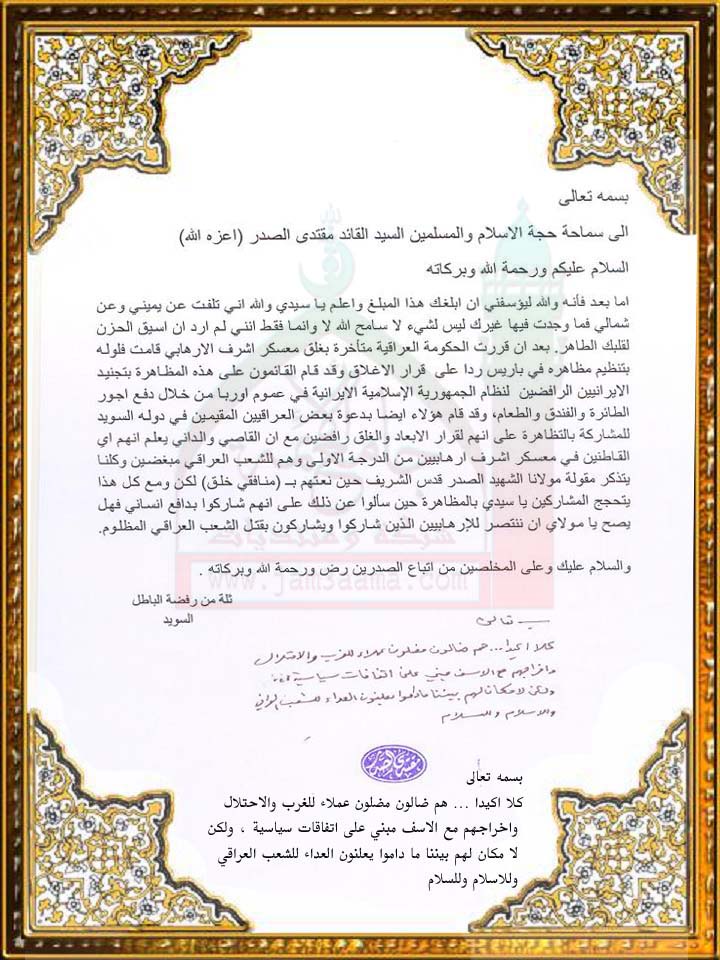 بسمه تعالى
الى سماحة حجة الاسلام والمسلمين السيد القائد مقتدى الصدر (اعزه الله)
السلام عليكم ورحمة الله وبركاته
اما بعد فأنه والله ليؤسفني ان ابلغك هذا المبلغ واعلم يا سيدي والله اني تلفت عن يميني وعن
شمالي فما وجدت فيها غيرك ليس لشيء لا سامح الله لا وانما فقط انني لم ارد ان اسيق الحزن
لقلبك الطاهر. بعد ان قررت الحكومة العراقية متأخرة بغلق معسكر اشرف الارهابي قامت فلوله
بتنظيم مظاهره في باريس ردا على قرار الاغلاق وقد قام القائمون على هذه المظاهرة بتجنيد
الايرانيين الرافضين لنظام الجمهورية الإسلامية الايرانية في عموم اوربا من خلال دفع اجور
الطائرة والفندق والطعام، وقد قام هؤلاء ايضا بدعوة بعض العراقيين المقيمين في دوله السويد
للمشاركة بالتظاهرة على انهم لقرار الابعاد والغلق رافضين مع ان القاصي والداني يعلم انهم اي
القاطنين في معسكر اشرف ارهابيين من الدرجة الاولى وهم للشعب العراقي مبغضين وكلنا
يتذكر مقولة مولانا الشهيد الصدر قدس الشريف حين نعتهم بـ (منافقي خلق) لكن ومع كل هذا
يتحجج المشاركين يا سيدي بالمظاهرة حين سألوا عن ذلك على انهم شاركوا بدافع انساني فهل
يصح يا مولاي ان ننتصر للإرهابيين الذين شاركوا ويشاركون بقتل الشعب العراقي المظلوم.
والسلام عليك وعلى المخلصين من اتباع الصدرين رض ورحمة الله وبركاته .
ثلة من رفضة الباطل
السويد
شبكة ومنتديات
www.jam3aama.com
بسمه تعالى
كلا اكيدا... هم ضالون مضلون عملاء للغرب والاحتلال
واخراجهم مع الاسف مبني على اتفاقات سياسية
ولكن لا مكان لهم بيننا ما داموا يعلنون العداء للشعب العراقي
وللاسلام وللسلام
مقتدى الصدر
بسمه تعالى
كلا اكيدا ... هم ضالون مضلون عملاء للغرب والاحتلال
واخراجهم مع الاسف مبني على اتفاقات سياسية ، ولكن
لا مكان لهم بيننا ما داموا يعلنون العداء للشعب العراقي
وللاسلام وللسلام